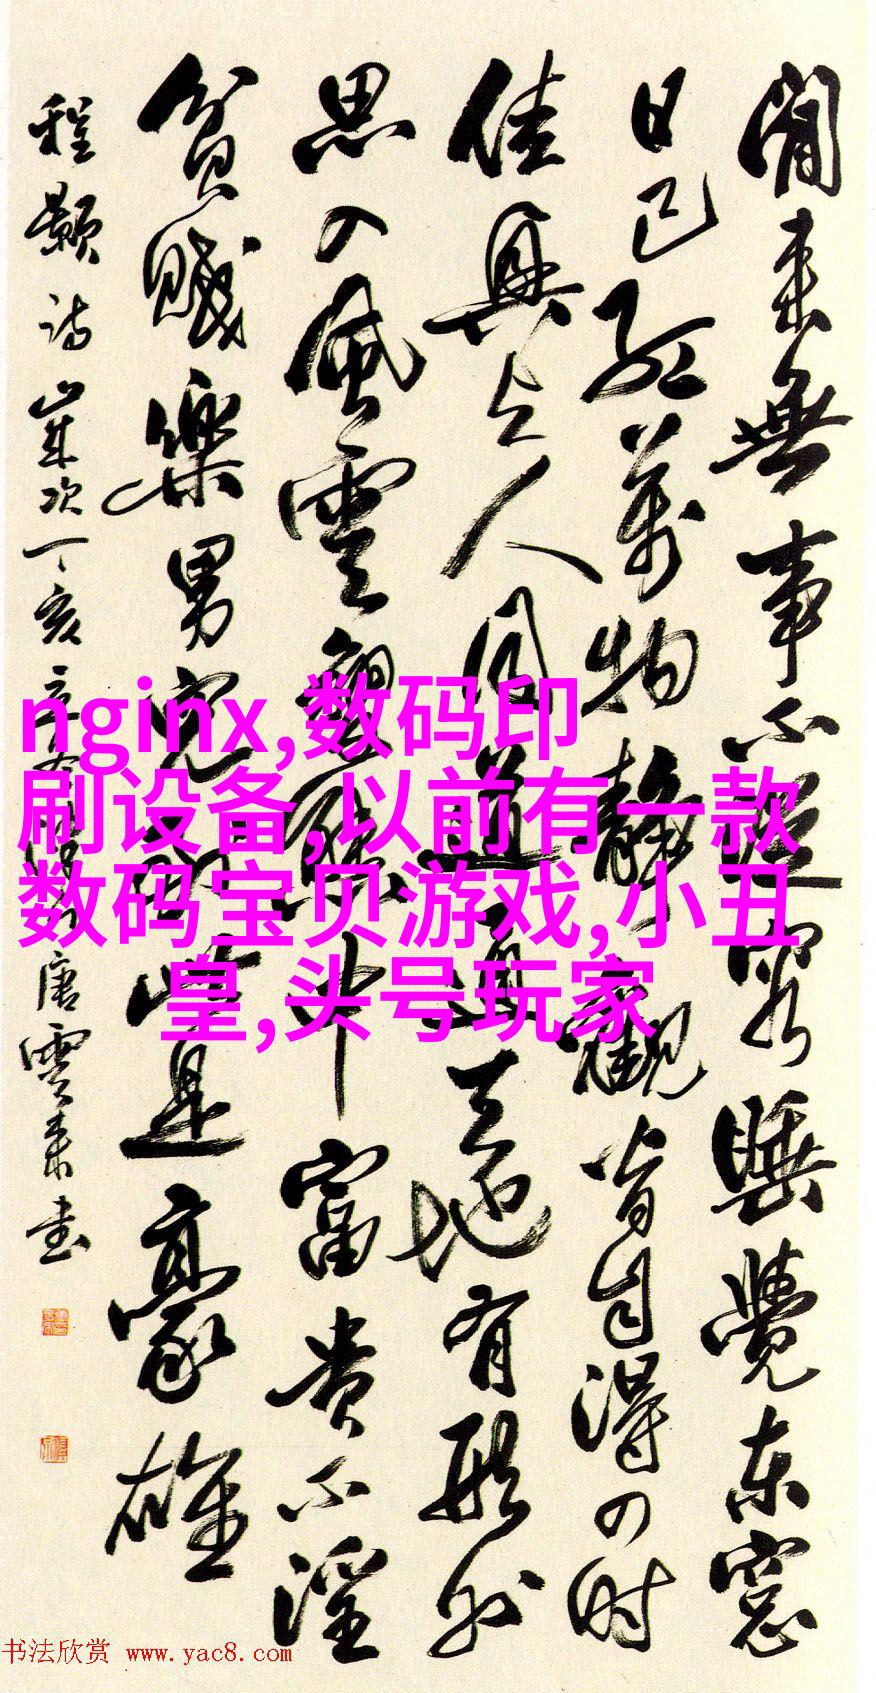 閒来無事不從容睡覺东窓
日已红萬物静觀皆自得四时
佳興与人同道通天地有形外
思入風雲變態中富贵不淫
貧賤樂男兒到此是豪雄
程颢诗 岁次丁亥 唐雲来书
nginx,数码印
刷设备,以前有一款
数码宝贝游戏,小丑
皇,头号玩家
书法欣赏 www.yac8.com